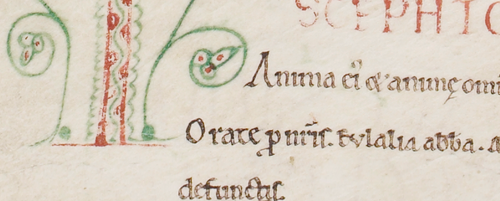 SCEPHTO
Anima ei' & animę omi
Orate ꝓ nr̃is. Eulalia abba. A
defunctis.